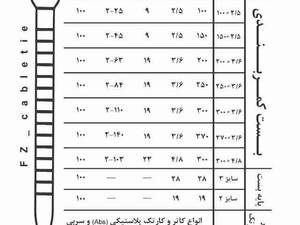 بست کمربندی
FZ_cabletie
۱۰۰×۲/۵ ۱۰۰ ۲/۵ ۹ ۲-۲۵ ۱۰۰
۱۵۰×۲/۵ ۱۵۰ ۲/۵ ۹ ۲-۴۵ ۱۰۰
۲۰۰×۳/۶ ۲۰۰ ۳/۶ ۱۹ ۲-۶۳ ۱۰۰
۲۵۰×۳/۶ ۲۵۰ ۳/۶ ۱۹ ۲-۸۴ ۱۰۰
۳۰۰×۳/۶ ۳۰۰ ۳/۶ ۱۹ ۲-۱۱۰ ۱۰۰
۳۷۰×۳/۶ ۳۷۰ ۳/۶ ۱۹ ۲-۱۴۰ ۱۰۰
۳۰۰×۴/۸ ۳۰۰ ۴/۸ ۲۳ ۲-۱۰۳ ۱۰۰
پایه بست
سایز ۳ ۲۸ ۲۸ — — ۱۰۰
سایز ۲ ۱۹ ۱۹ — — ۱۰۰
انواع کاتر و کارتک پلاستیکی (Abs) و سربی